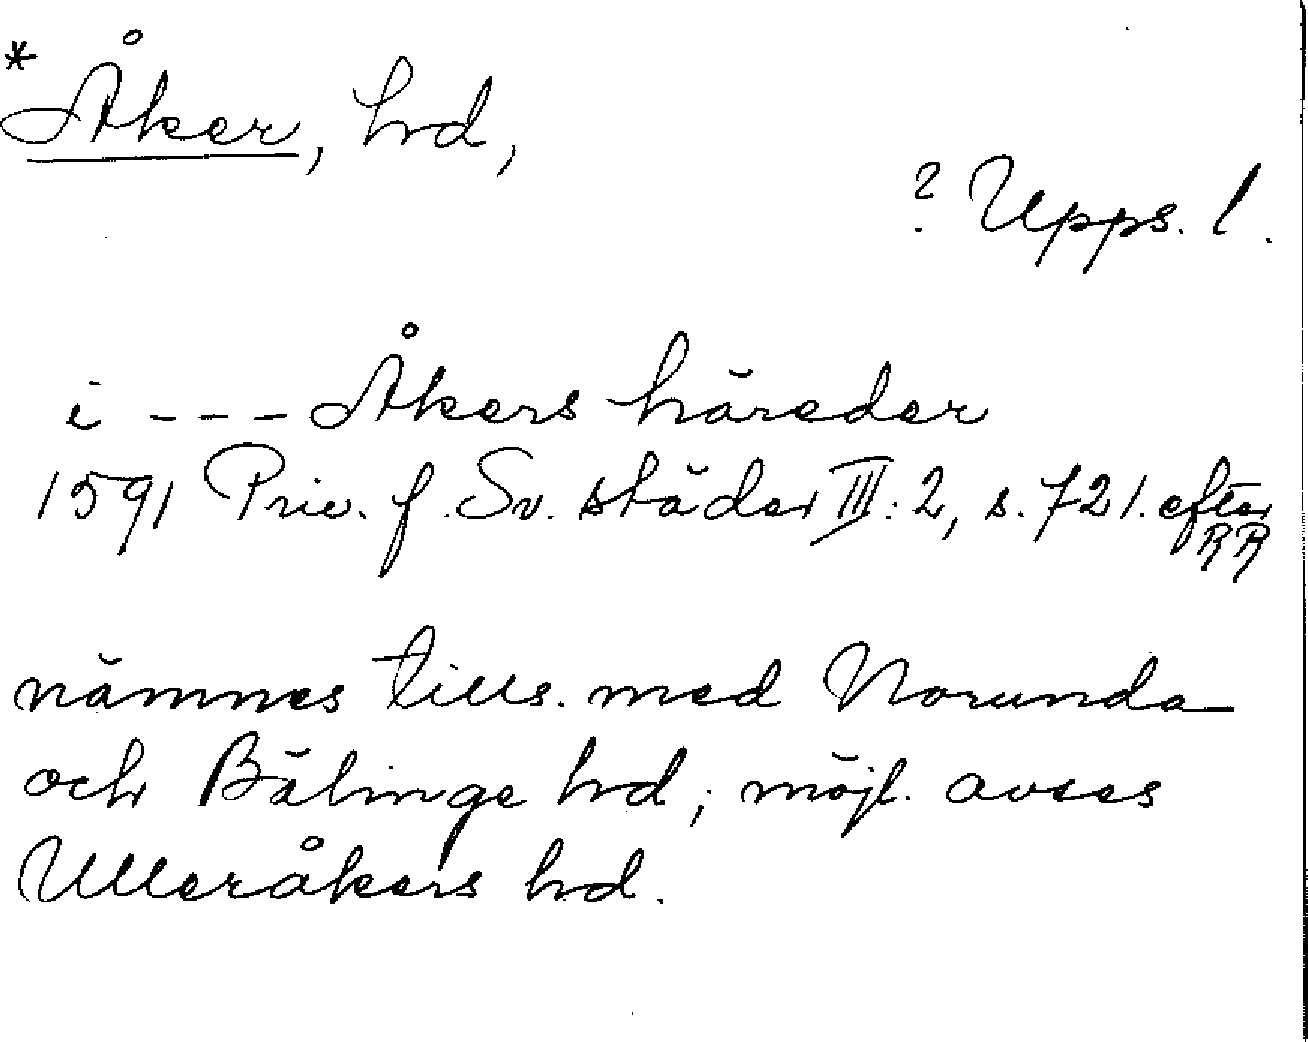 * Åker, hd,
? Upps. l.
i - - - Åkers häreder
1591 Priv. f. Sv. städer III: 2, s. 721. efter
RR
nämnes tills. med Norunda
och Bälinge hd; möjl. avses
Ulleråkers hd.